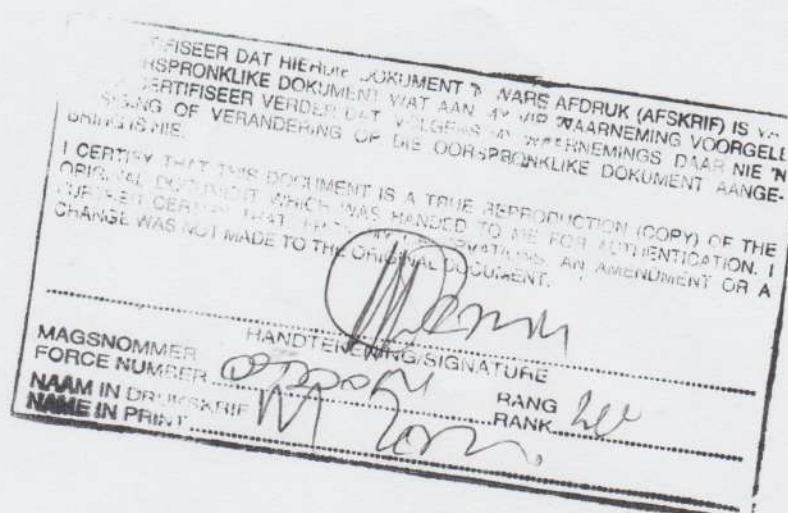 TIFISEER DAT HIERDIE DOKUMENT 'N WARE AFDRUK (AFSKRIF) IS VA
RSPRONKLIKE DOKUMENT WAT AAN MY VIR WAARNEMING VOORGELE
SERTIFISEER VERDER DAT VOLGENS MY WAARNEMINGS DAAR NIE 'N
SIGING OF VERANDERING OP DIE OORSPRONKLIKE DOKUMENT AANGE-
BRING IS NIE.
I CERTIFY THAT THIS DOCUMENT IS A TRUE REPRODUCTION (COPY) OF THE
ORIGINAL DOCUMENT WHICH WAS HANDED TO ME FOR AUTHENTICATION. I
FURTHER CERTIFY THAT, FROM MY OBSERVATIONS, AN AMENDMENT OR A
CHANGE WAS NOT MADE TO THE ORIGINAL DOCUMENT.
HANDTEKENING/SIGNATURE
MAGSNOMMER
FORCE NUMBER
RANG
RANK
NAAM IN DRUKSKRIF
NAME IN PRINT